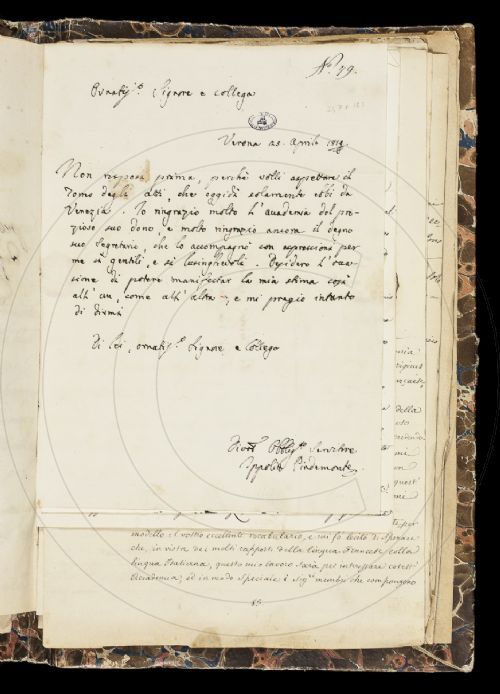 N.° 79.
Ornatiss.° Signore e collega
Verona 25. Aprile 1819
Non risposi prima, perchè volli aspettare il
Tomo degli Atti, che oggidì solamente ebbi da
Venezia. Io ringrazio molto l'Accademia del pre-
zioso suo dono, e molto ringrazio ancora il degno
suo Segretario, che lo accompagnò con espressioni per
me sì gentili, e sì lusinghevoli. Desidero l'occa-
sione di potere manifestar la mia stima così
all'una, come all'altro, e mi pregio intanto
di dirmi
Di Lei, ornatiss.° Signore e Collega
Obblig.° Servitore
Ippolito Pindemonte
modello il vostro eccellente vocabolario, e mi fo lecito di sperare
che, in vista dei molti rapporti della lingua Francese colla
lingua Italiana, questo mio lavoro sarà per interessare cotest'
Accademia, ed in modo speciale i Sig.ri membri che compongono
85
della
questi
mie